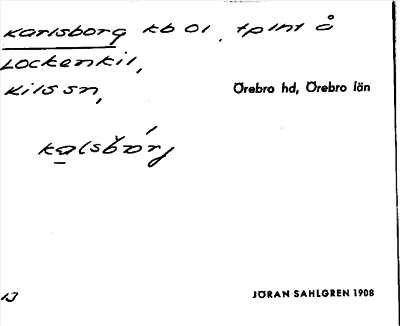 Karlsborg kb 01, tplnt å
Lockenkil,
Kils sn,
Örebro hd, Örebro län
kalsbor̨j
JÖRAN SAHLGREN 1908